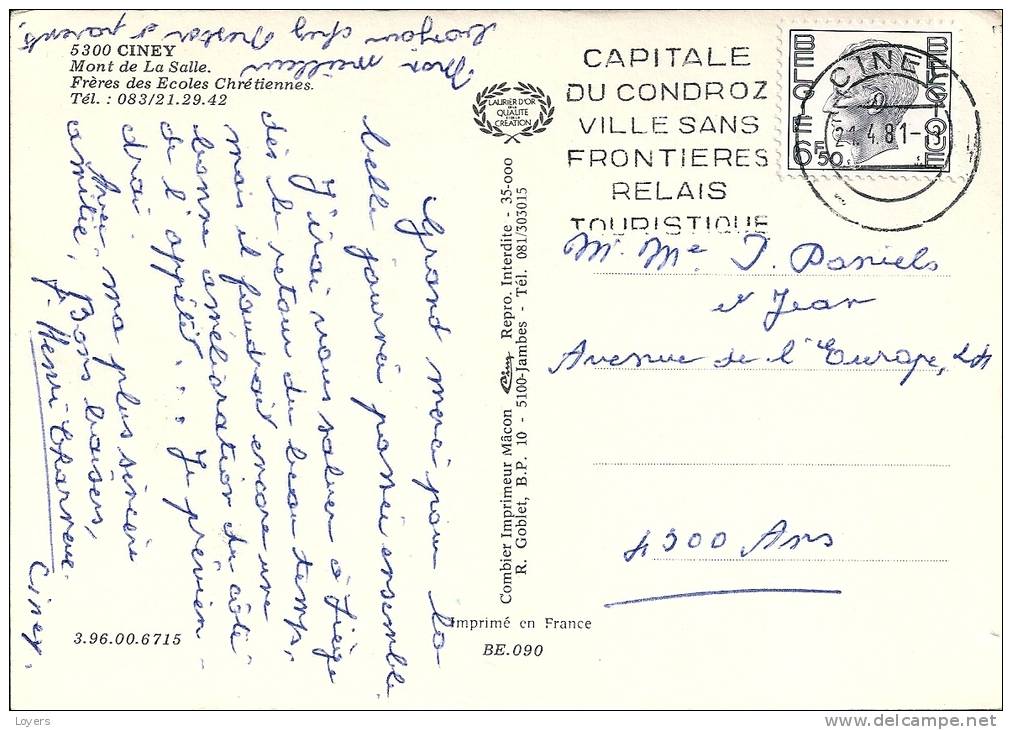 5300 CINEY
Mont de La Salle.
Frères des Ecoles Chrétiennes.
Tél. : 083/21.29.42
LAURIER D'OR
DE LA
QUALITÉ
CRÉATION
CAPITALE
DU CONDROZ
VILLE SANS
FRONTIERES
RELAIS
TOURISTIQUE
CINEY
21.4.81-
BELGIE
BELGIQUE
6F50
Mr Me J. Daniels
et Jean
Avenue de l'Europe, 24
4300 Ans
Grand merci pour la
belle journée passée ensemble.
J'irai vous saluer à Liège
dès le retour du beau temps,
mais il faudrait encore une
bonne amélioration du côté
de l'appétit... Je prévien-
drai.
Avec ma plus sincère
amitié, Bons baisers,
f. Henri
Ciney.
Mon meilleur
bonjour chez Nestor et parents.
Combier Imprimeur Mâcon Cim Repro. Interdite - 35-000
R. Goblet, B.P. 10 - 5100-Jambes - Tél. 081/303015
3.96.00.6715
Imprimé en France
BE.090
Loyers
delcampe.net